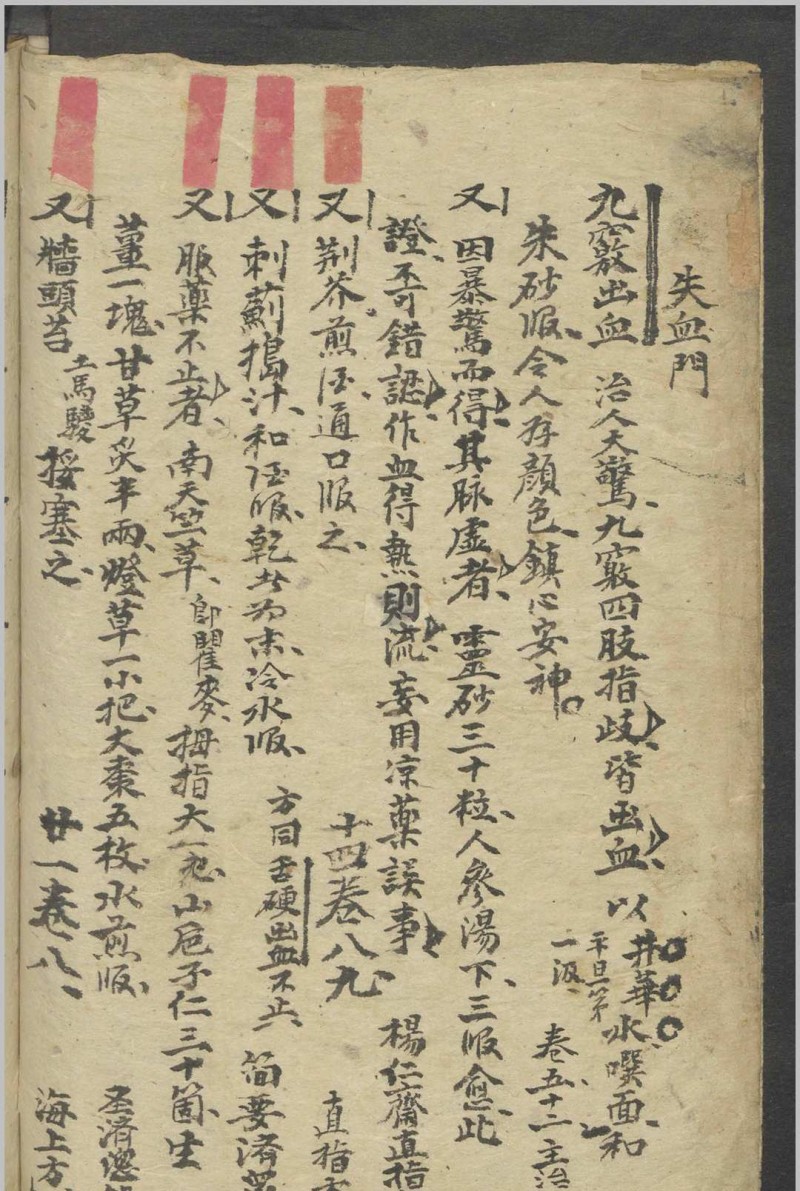 失血門
九竅出血 治人大驚九竅四肢指歧皆出血 以井華水噀面和
平旦第一汲
朱砂服令人存顏色鎮心安神 卷五十二 主治
又 因暴驚而得其脉虛者 靈砂三十粒人參湯下三服愈此
證不可錯認作血得熱則流妄用凉藥誤事 楊仁齋直指
又 荆芥煎酒通口服之 十四卷八九 直指
又 刺薊搗汁和酒服乾者為末冷水服 方同舌硬出血不止 簡要濟
又 服藥不止者 南天竺草 即瞿麥 拇指大一把山梔子仁三十箇生
薑一塊甘草炙半兩燈草一小把大棗五枚水煎服 圣済總
又 牆頭苔 土馬騣 挼塞之 廿一卷八 海上方